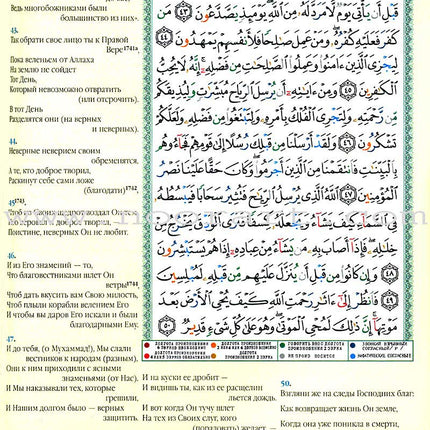 Ведь многобожниками были
большинство из них».
43.
Так обрати свое лицо ты к Правой
Вере
Пока веленьем от Аллаха
На землю не сойдет
Тот День,
Который невозможно отвратить
(или отсрочить).
В тот День
Разделятся они (на верных
и неверных).
44.
Неверные неверием своим
обременятся,
А те, кто доброе творил,
Раскинут себе сами ложе
(благодати)
Поистине, неверных Он не любит.
46.
И из Его знамений — то,
Что благовестниками шлет Он
ветры
Чтоб дать вкусить вам Свою милость,
Чтоб плыли корабли велением Его
И чтобы вы даров Его искали и были
благодарными Ему.
47.
И до тебя, (о Мухаммад!), Мы слали
вестников к народам (разным),
Они к ним приходили с ясными
знаменьями (от Нас).
И Мы наказывали тех, которые
грешили,
И Нашим долгом было — верных
защитить.
قَبْلِ أَن يَأْتِيَ يَوْمٌ لَّا مَرَدَّ لَهُ مِنَ اللَّهِ يَوْمَئِذٍ يَصَّدَّعُونَ ٤٣ مَن
كَفَرَ فَعَلَيْهِ كُفْرُهُ وَمَنْ عَمِلَ صَالِحًا فَلِأَنفُسِهِمْ يَمْهَدُونَ ٤٤
لِيَجْزِيَ الَّذِينَ آمَنُوا وَعَمِلُوا الصَّالِحَاتِ مِن فَضْلِهِ إِنَّهُ لَا يُحِبُّ
الْكَافِرِينَ ٤٥ وَمِنْ آيَاتِهِ أَن يُرْسِلَ الرِّيَاحَ مُبَشِّرَاتٍ وَلِيُذِيقَكُم
مِّن رَّحْمَتِهِ وَلِتَجْرِيَ الْفُلْكُ بِأَمْرِهِ وَلِتَبْتَغُوا مِن فَضْلِهِ وَلَعَلَّكُمْ
تَشْكُرُونَ ٤٦ وَلَقَدْ أَرْسَلْنَا مِن قَبْلِكَ رُسُلًا إِلَىٰ قَوْمِهِمْ فَجَاءُوهُم
بِالْبَيِّنَاتِ فَانتَقَمْنَا مِنَ الَّذِينَ أَجْرَمُوا وَكَانَ حَقًّا عَلَيْنَا نَصْرُ
الْمُؤْمِنِينَ ٤٧ اللَّهُ الَّذِي يُرْسِلُ الرِّيَاحَ فَتُثِيرُ سَحَابًا فَيَبْسُطُهُ
فِي السَّمَاءِ كَيْفَ يَشَاءُ وَيَجْعَلُهُ كِسَفًا فَتَرَى الْوَدْقَ يَخْرُجُ مِنْ
خِلَالِهِ فَإِذَا أَصَابَ بِهِ مَن يَشَاءُ مِنْ عِبَادِهِ إِذَا هُمْ يَسْتَبْشِرُونَ
٤٨ وَإِن كَانُوا مِن قَبْلِ أَن يُنَزَّلَ عَلَيْهِم مِّن قَبْلِهِ لَمُبْلِسِينَ
٤٩ فَانظُرْ إِلَىٰ آثَارِ رَحْمَتِ اللَّهِ كَيْفَ يُحْيِي الْأَرْضَ بَعْدَ
مَوْتِهَا إِنَّ ذَٰلِكَ لَمُحْيِي الْمَوْتَىٰ وَهُوَ عَلَىٰ كُلِّ شَيْءٍ قَدِيرٌ ٥٠
И на куски ее дробит —
И видишь ты, как из ее расщелин
льется дождь.
И вот когда Он тучу шлет
На тех из Своих слуг, кого
(порадовать) желает, —
50.
Взгляни же на следы Господних благ:
Как возвращает жизнь Он земле,
Когда она уже поникла в смерти,